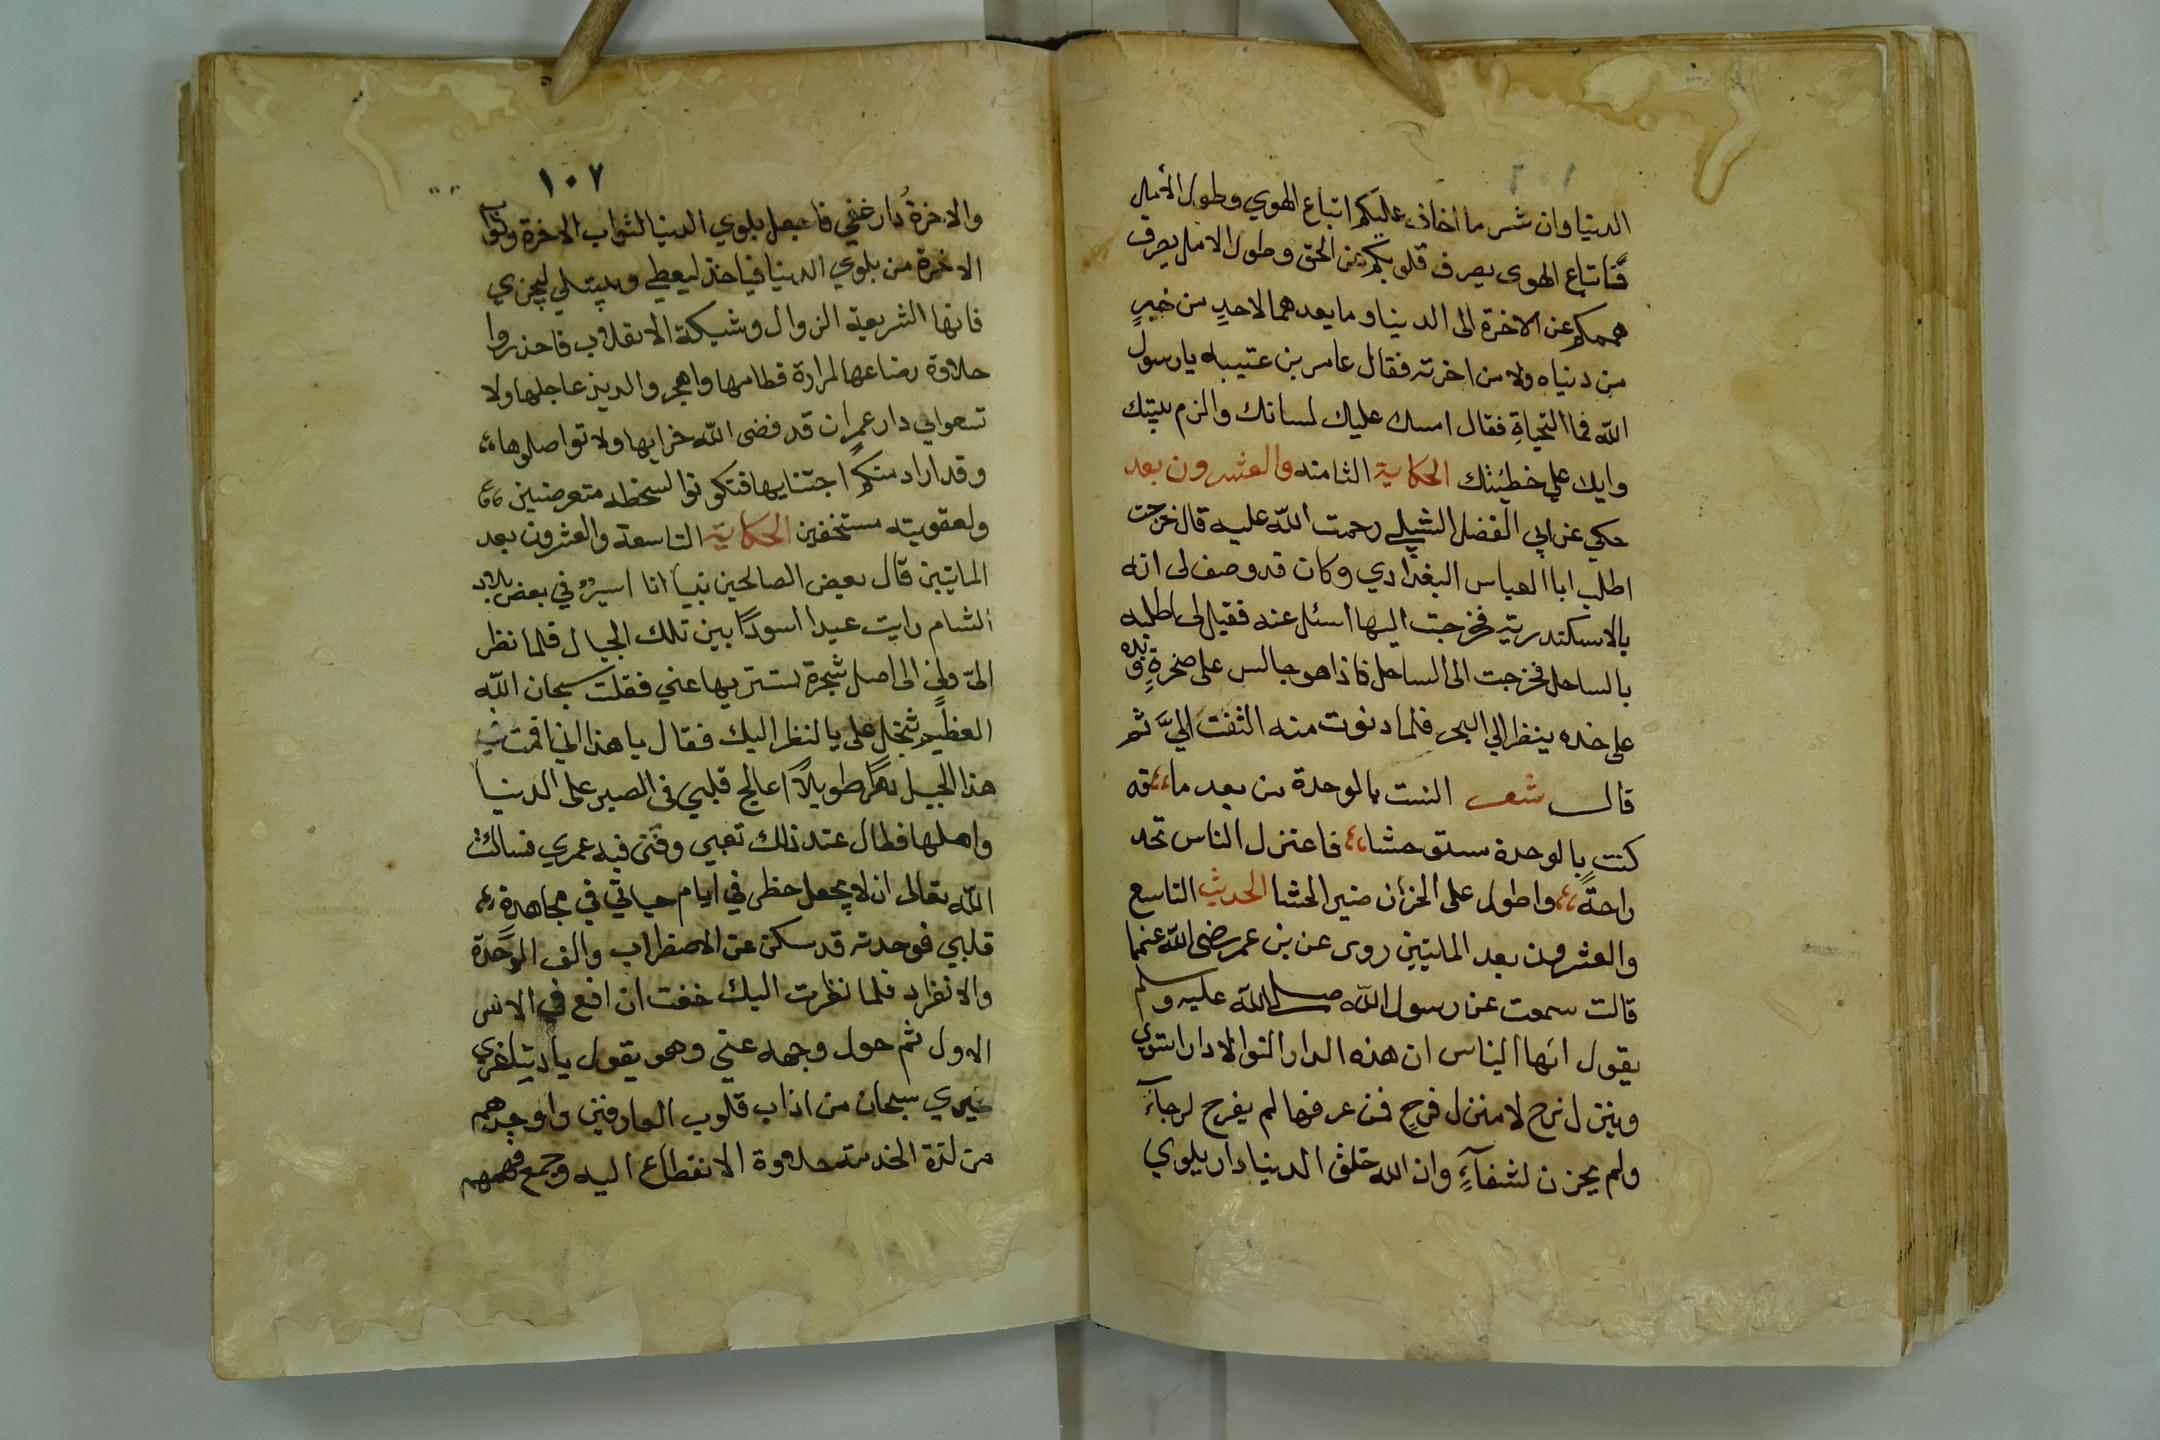 الدنيا وان شر ما اخاف عليكم اتباع الهوي وطول الأمل
فاتباع الهوى يصرف قلوبكم عن الحق وطول الامل يصرف
هممكم عن الاخرة الى الدنيا وما بعدهما لاحدٍ من خيرٍ
من دنياه ولا من اخرته فقال عامر بن عتيبه يا رسول
الله فما النجاةِ فقال امسك عليك لسانك والزم بيتك
وابك علي خطيئتك الحكاية الثامنه والعشرون بعد
حكي عن ابي الفضل الشبلي رحمت الله عليه قال خرجت
اطلب ابا العباس البغدادي وكان قد وصف لى انه
بالاسكندرية فخرجت اليها اسئل عنه فقيل لى اطلبه
بالساحل فخرجت الى الساحل فاذا هو جالس على صخرةٍ ويده
على خده ينظر الي البحر فلما دنوت منه التفت اليَّ ثم
قال شعر انست بالوحدة من بعد ما قه
كنت بالوحدة مستوحشا فاعتزل الناس تجد
راحةً واطول على الحزن ضير الحشا الحديث التاسع
والعشرون بعد المايتين روى عن بن عمر رضى الله عنهما
قالت سمعت عن رسول الله صلى الله عليه وسلم
يقول ايها الناس ان هذه الدار التوا لا دار استوي
ومنزل ترح لا منزل فرح فمن عرفها لم يفرح لرجاءٓ
ولم يحزن لشقآءٍ وان الله خلق الدنيا دار بلوي
١٠٧
والاخرة دار عقبي فاجعل بلوي الدنيا لثواب الاخرة وثواب
الاخرة من بلوي الدنيا فياخذ ليعطي ويبتلي ليجزي
فانها الشريعة الزوال وشيكة الانقلاب فاحذروا
حلاوة رضاعها لمرارة فطامها واهجروا لذيذ عاجلها ولا
تسعوا في دار عمران قد قضى الله خرابها ولا تواصلوها
وقد اراد منكم اجتنابها فتكونوا لسخطه متعرضين
ولعقوبته مستخفين الحكاية التاسعة والعشرون بعد
المايتين قال بعض الصالحين بنيا انا اسير في بعض بلاد
الشام رايت عبدا اسودًا بين تلك الجبال فلما نظر
اليّ ولي الى اصل شجرة يستتر بها عني فقلت سبحان الله
العظيم تبخل على بالنظر اليك فقال يا هذا اني اقمت في
هذا الجبل دهرًا طويلًا اعالج قلبي في الصبر على الدنيا
واهلها فطال عند ذلك تعبي وفنى فيه عمري فسالت
الله تعالى ان لا يجعل حظى في ايام حياتي في مجاهدة
قلبي فوحدته قد سكن عن الاضطراب والف الوَحدة
والانفراد فلما نظرت اليك خفت ان اقع في الانس
الاول ثم حول وجهه عني وهو يقول يا دنيا غري
غيري سبحان من اذاب قلوب العارفين واوجدهم
من لذة الخدمة حلاوة الانقطاع اليه وجمع فهمهم